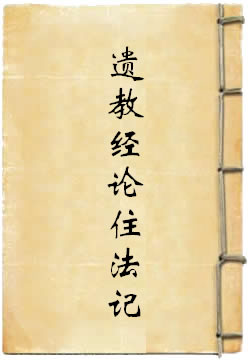 遗教经论住法记